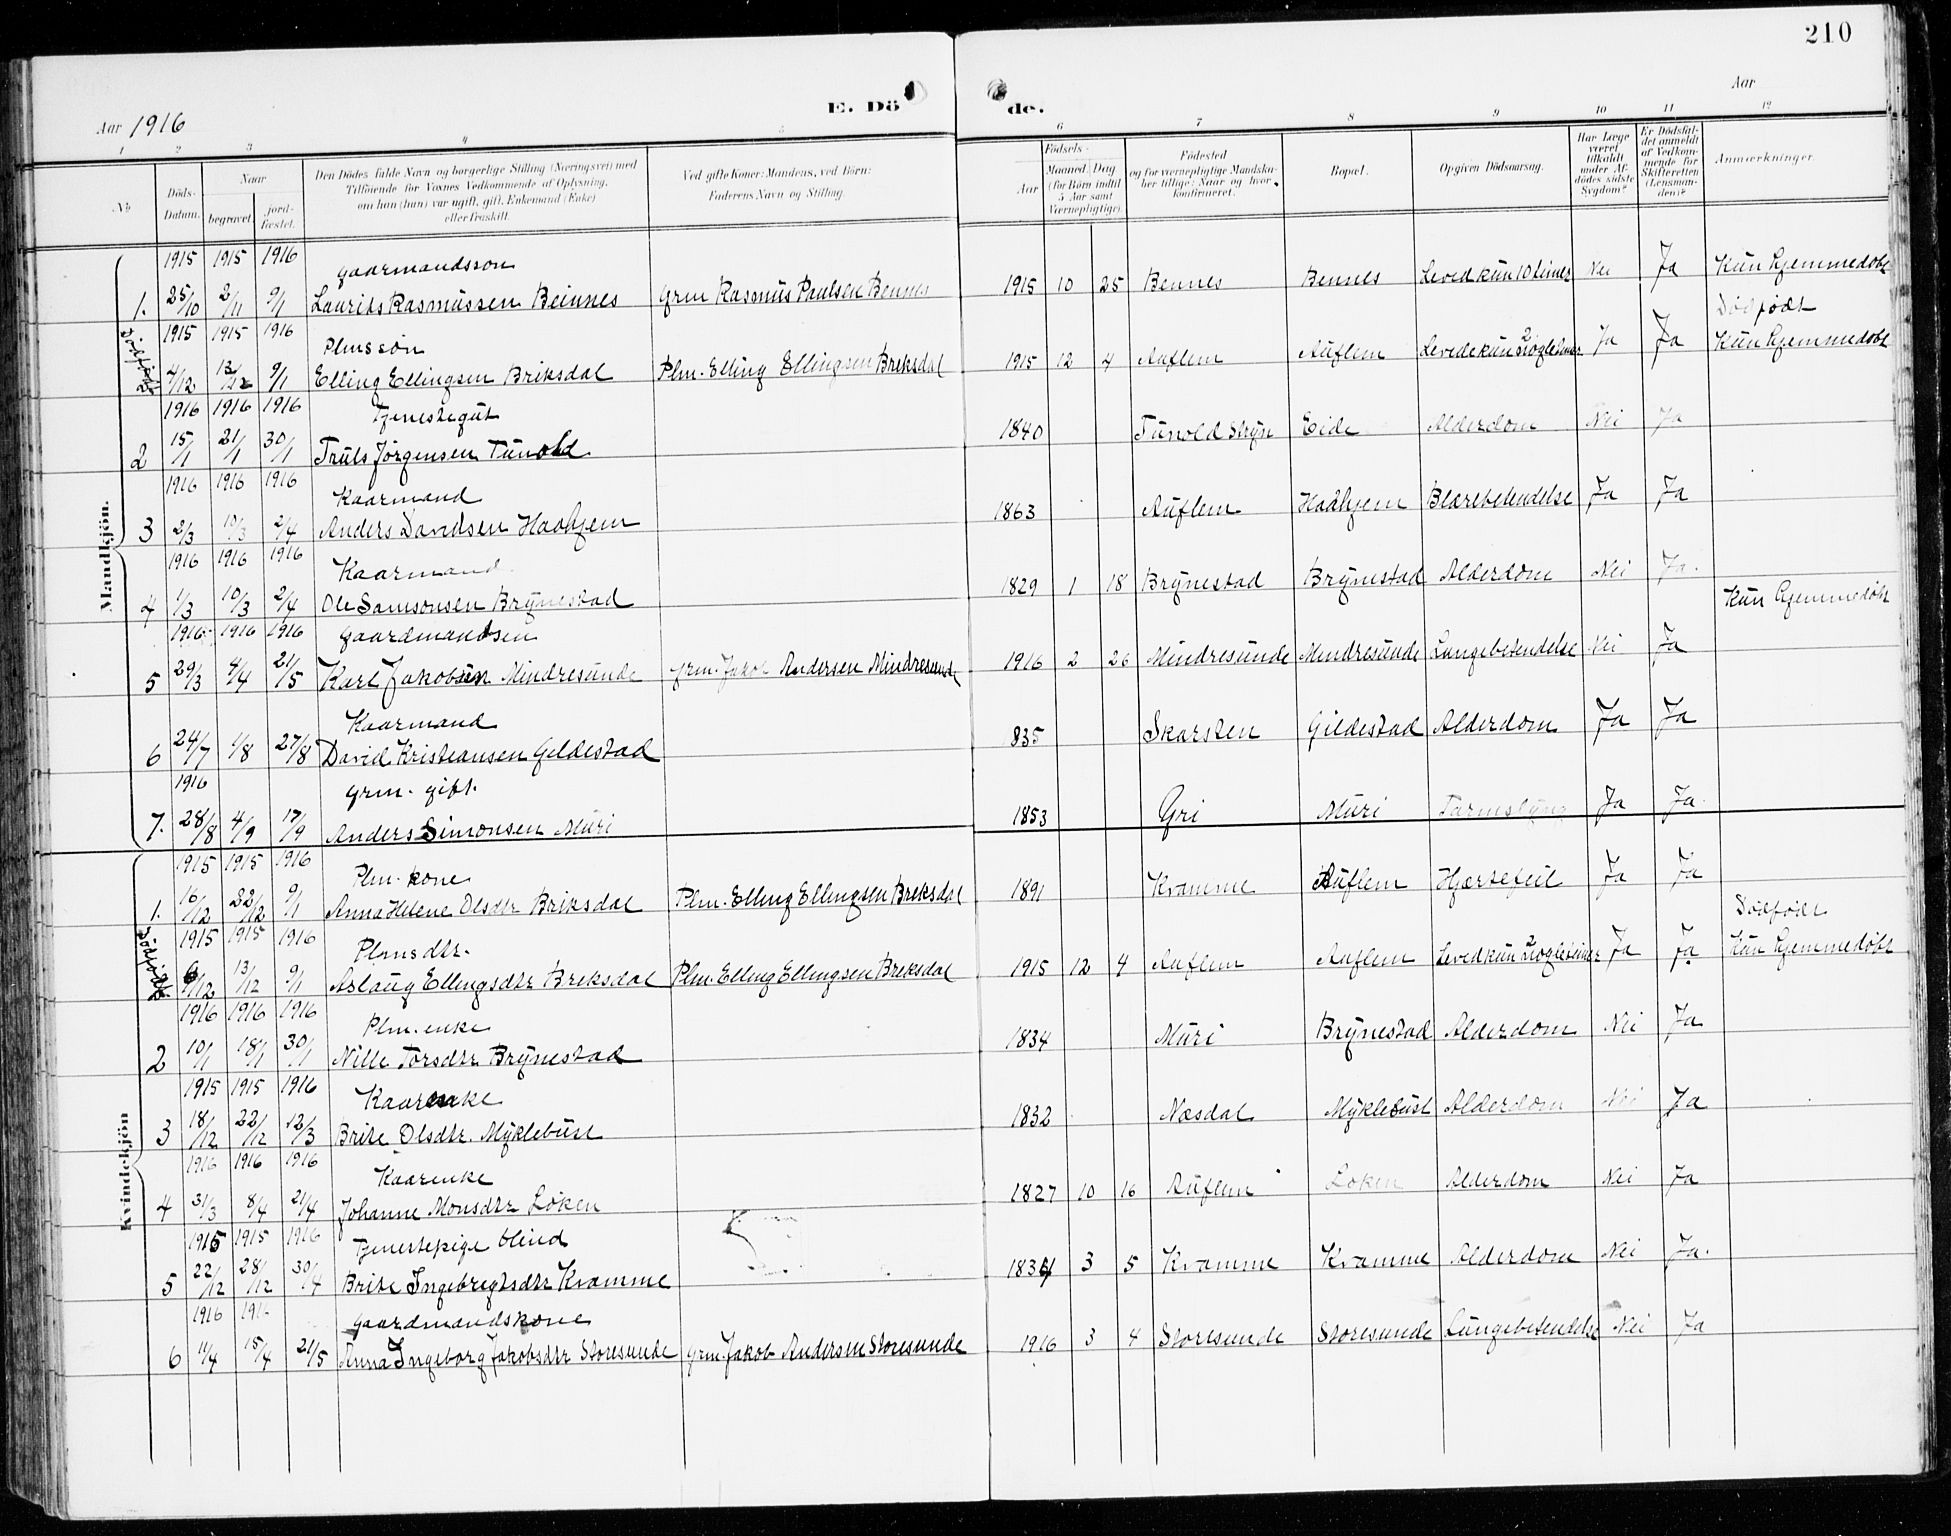 210
E. Dö de.
Aar 1916
Aar
1 2 3 4 5 6 7 8 9 10 11 12
No
Döds-Datum.
Naar
begravet
jord-fæstet.
Den Dödes fulde Navn og borgerlige Stilling (Næringsvei) med
Tilföiende for Voxnes Vedkommende af Oplysning,
om han (hun) var ugift, gift, Enkemand (Enke)
eller fraskilt.
Ved gifte Koner: Mandens, ved Börn:
Faderens Navn og Stilling.
Födsels-
Aar
Maaned Dag
(for Börn indtil 5 Aar samt Værnepligtige)
Födested
og for værnepligtige Mandskaber tillige: Naar og hvor konfirmeret.
Bopæl.
Opgiven Dödsaarsag.
Har Læge været tilkaldt under Afdödes sidste Sygdom?
Er Dödsfaldet anmeldt af Vedkommende for Skifteretten (Lensmanden)?
Anmærkninger.
Mandkjön.
1915 1915 1916 gaarmandsson
1. 25/10 2/11 9/1 Laurits Rasmussen Beinnes Grm Rasmus Paulsen Bennes 1915 10 25 Bennes Bennes Leved kun 10 timer Nei Ja Kun hjemmedøbt
Dødfødt 1915 1915 1916 Plmssøn Dødfødt
4/12 13/12 9/1 Elling Ellingsen Briksdal Plm. Elling Ellingsen Breksdal 1915 12 4 Auflem Auflem Levede kun nogle timer Ja Ja Kun hjemmedøbt
1916 1916 1916 Tjenestegut
2 15/1 21/1 30/1 Truls Jørgensen Tunold 1840 Tunold Stryn Eide Alderdom Nei Ja
1916 1916 1916 Kaarmand
3 2/3 10/3 2/4 Anders Davidsen Haahjem 1863 Auflem Haahjem Blærebetendelse Ja Ja
1916 1916 1916 Kaarmand
4 1/3 10/3 2/4 Ole Samsonsen Brynestad 1829 1 18 Brynestad Brynestad Alderdom Nei Ja.
1916 1916 1916 gaardmandsen Kun hjemmedøbt
5 29/3 4/4 21/5 Karl Jakobsen Mindresunde Grm. Jakob Andersen Mindresunde 1916 2 26 Mindresunde Mindresunde Lungebetendelse Nei Ja
Kaarmand
6 24/7 1/8 27/8 David Kristiansen Gildestad 835 Skarsten Gildestad Alderdom Ja Ja
1916 grm. gift.
7. 28/8 4/9 17/9 Anders Simonsen Muri 1853 Gri Muri Ja Ja.
Kvindekjön
1915 1915 1916 Plm. kone
1. 16/12 22/12 9/1 Anna Helene Olsdtr Briksdal Plm. Elling Ellingsen Breksdal 1891 Kvamme Auflem Hjertefeil Ja Ja
Dødfødt 1915 1915 1916 Plmsdtr. Dødfødt
6/12 13/12 9/1 Aslaug Ellingsdtr Breksdal Plm. Elling Ellingsen Breksdal 1915 12 4 Auflem Auflem Leved kun nogle timer Ja Ja Kun hjemmedøbt
1916 1916 1916 Plm. enke
2 10/1 18/1 30/1 Nille Torsdtr Brynestad 1834 Muri Brynestad Alderdom Nei Ja
1915 1915 1916 Kaarenke
3 18/12 22/12 12/3 Brite Olsdtr. Myklebust 1832 Næsdal Myklebust Alderdom Nei Ja
1916 1916 1916 Kaarenke
4 31/3 8/4 21/4 Johanne Monsdtr Løken 1827 10 16 Auflem Løken Alderdom Nei Ja
1915 1915 1916 Tjenestepige blind
5 22/12 28/12 30/4 Brite Ingebregtsdtr Kvamme 1834 3 5 Kvamme Kvamme Alderdom Nei Ja.
1916 1916 gaardmandskone
6 11/4 15/4 21/5 Anna Ingeborg Jakobsdtr Storesunde Grm. Jakob Andersen Storesunde 1916 3 4 Storesunde Storesunde Lungebetendelse Nei Ja